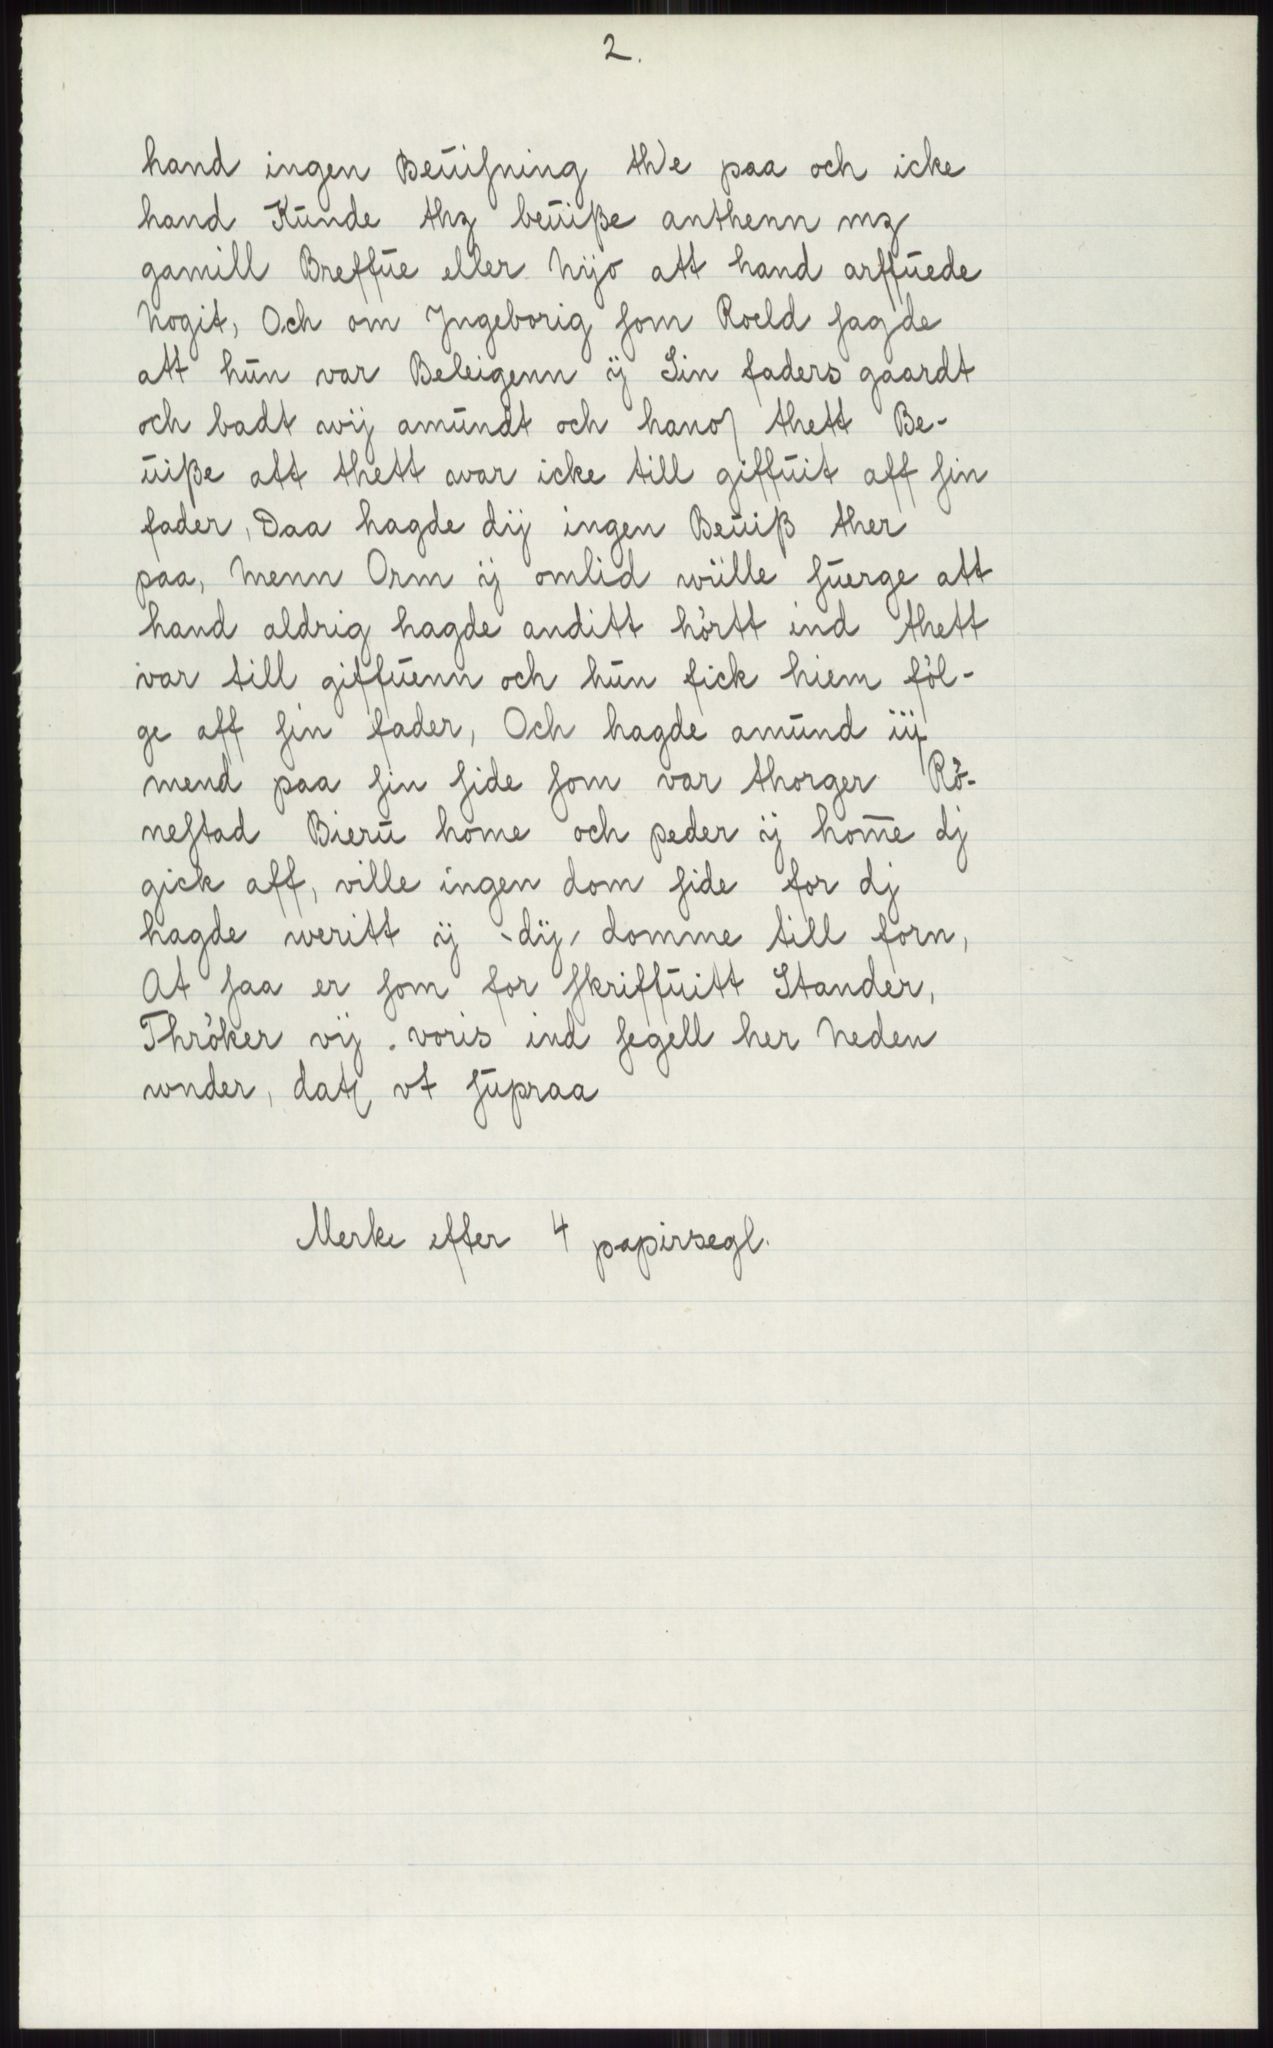 2.
hand ingen Beuisning th)e paa och icke
hand Kunde thz beuiße anthenn mz
gamill Breffue eller Nyo att hand arffuede
Nogit, Och om Jngeborig som Roeld sagde
att hun var Beleigenn ÿ Sin faders gaardt
och badt wij amundt och hans thett Be-
uiße att thett war icke till giffuit aff sin
fader, Daa hagde dij ingen Beuiß ther
paa, Menn Orm ÿ omlid wille suerge att
hand aldrig hagde anditt hørtt ind thett
var till giffuenn och hun fick hiem føl-
ge aff sin fader, Och hagde amund iij
mend paa sin side som var thorger Rø-
nestad Bieru home och peder ÿ hom̅e dj
gick aff, ville ingen dom side for dj
hagde weritt ÿ dij domme till forn,
At saa er som for skriffuitt Stander,
Thrøker vij . voris ind segell her Neden
wnder, datʃ vt supraa
Merke efter 4 papirsegl.